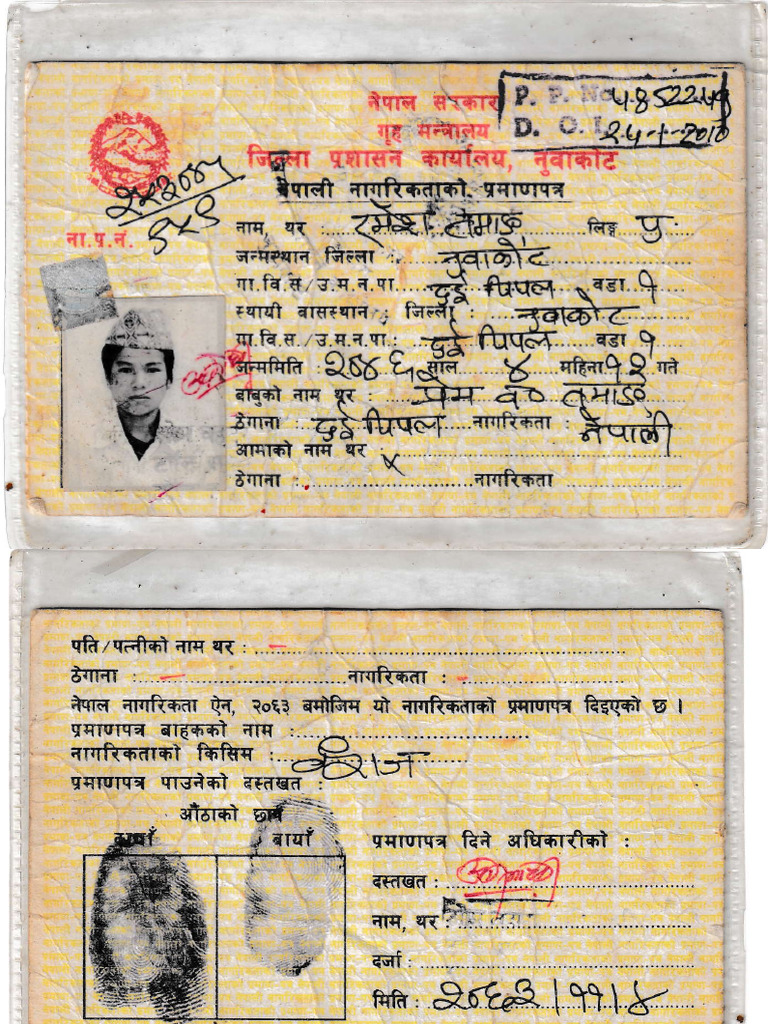 नेपाल सरकार
P. P. No. 4852249
गृह मन्त्रालय
D. O. I. 24-1-2010
जिल्ला प्रशासन कार्यालय, नुवाकोट
नेपाली नागरिकताको प्रमाणपत्र
ना.प.नं.
नाम, थर : रमेश तामाङ लिङ्ग पु.
जन्मस्थान जिल्ला : नुवाकोट
गा.वि.स/उ.म.न.पा. : दुई पिपल वडा १
स्थायी बासस्थान : जिल्ला : नुवाकोट
गा.वि.स./उ.म.न.पा. : दुई पिपल वडा १
जन्ममिति : साल ४ महिना १२ गते
बाबुको नाम थर : प्रेम व० तामाङ
ठेगाना : दुई पिपल नागरिकता : नेपाली
आमाको नाम थर : x
ठेगाना : नागरिकता
पति/पत्नीको नाम थर : -
ठेगाना : - नागरिकता : -
नेपाल नागरिकता ऐन, २०६३ बमोजिम यो नागरिकताको प्रमाणपत्र दिइएको छ ।
प्रमाणपत्र बाहकको नाम :
नागरिकताको किसिम : वंशज
प्रमाणपत्र पाउनेको दस्तखत :
औंठाको छाप
दायाँ बायाँ
प्रमाणपत्र दिने अधिकारीको :
दस्तखत :
नाम, थर :
दर्जा :
मिति : २०६३।११।४